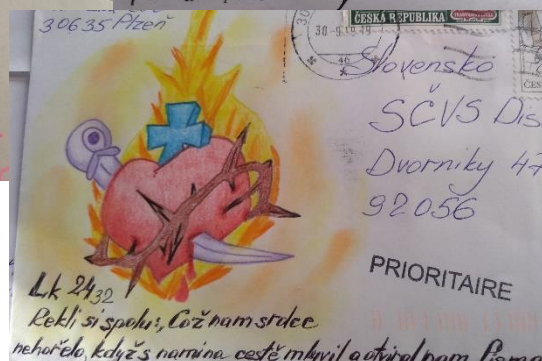 30635 Plzeň
ČESKÁ REPUBLIKA
30-9
46
Slovensko
SČVS Dis
Dvorniky 47
92056
PRIORITAIRE
Lk 24,32
Řekli si spolu: „Což nám srdce
nehořelo, když s námi na cestě mluvil a otvíral nám Písma